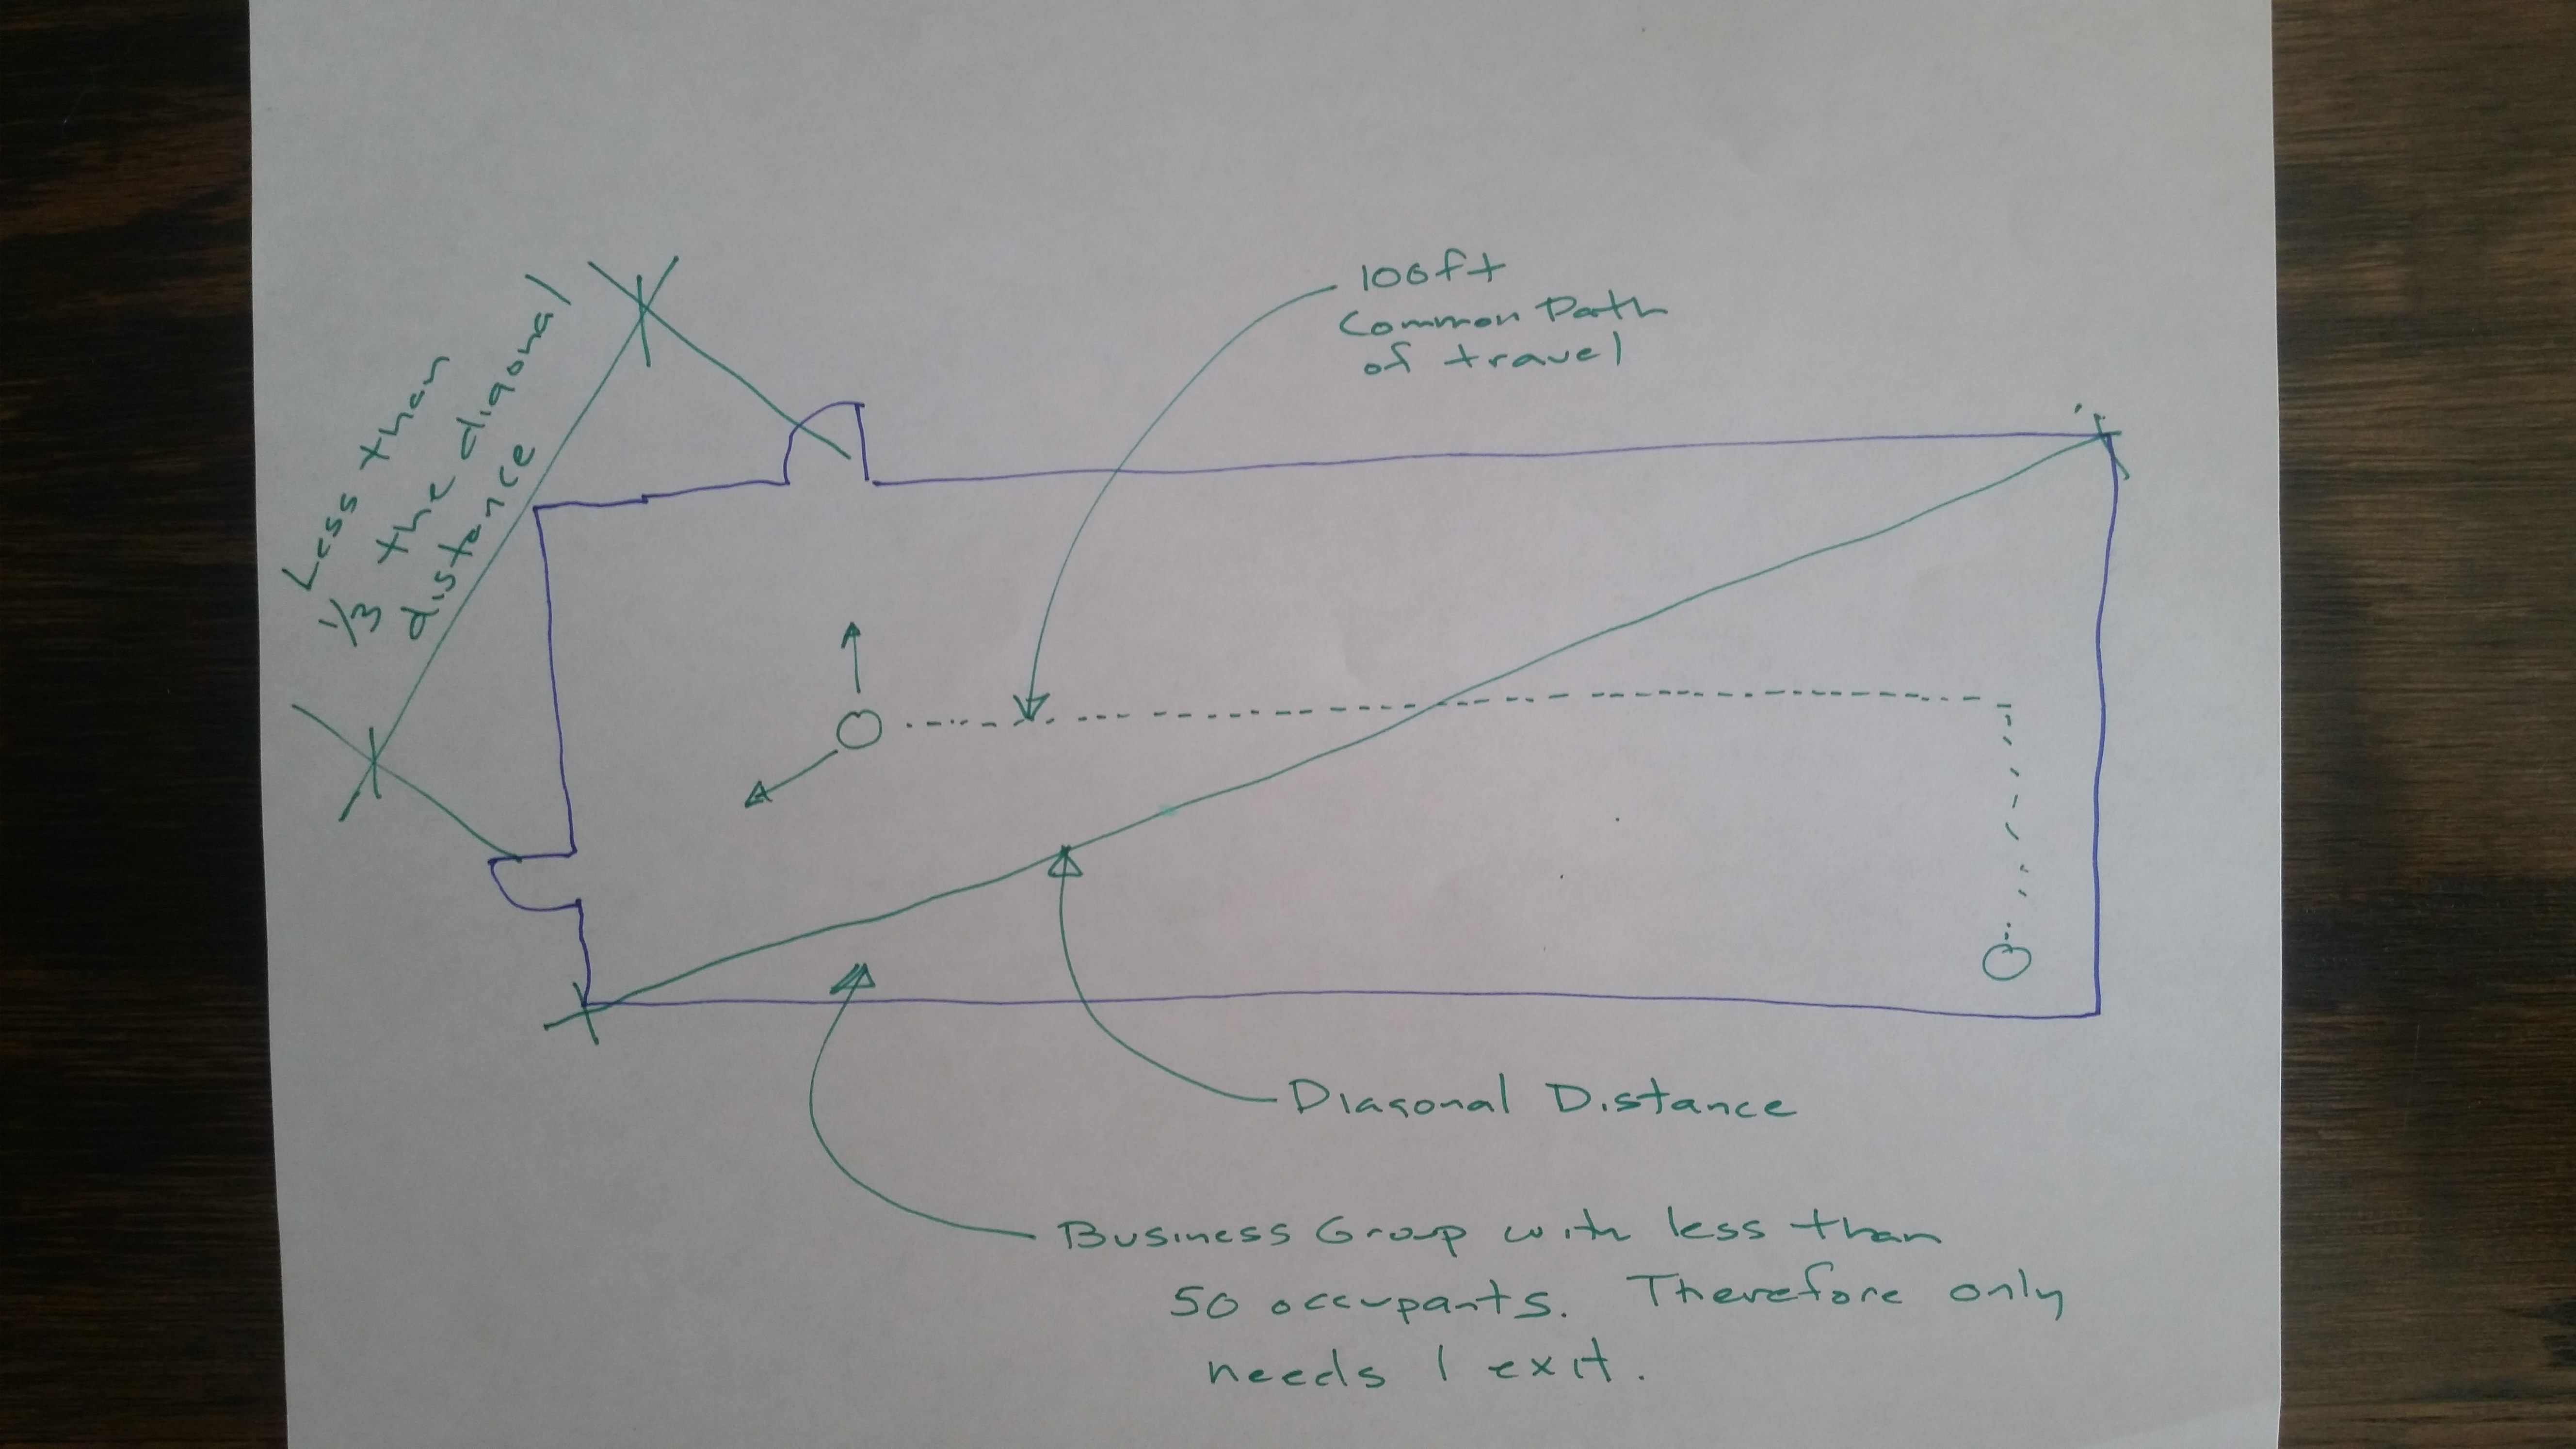 Less than
1/3 the diagonal
distance
100ft
Common Path
of travel
Diagonal Distance
Business Group with less than
50 occupants. Therefore only
needs 1 exit.